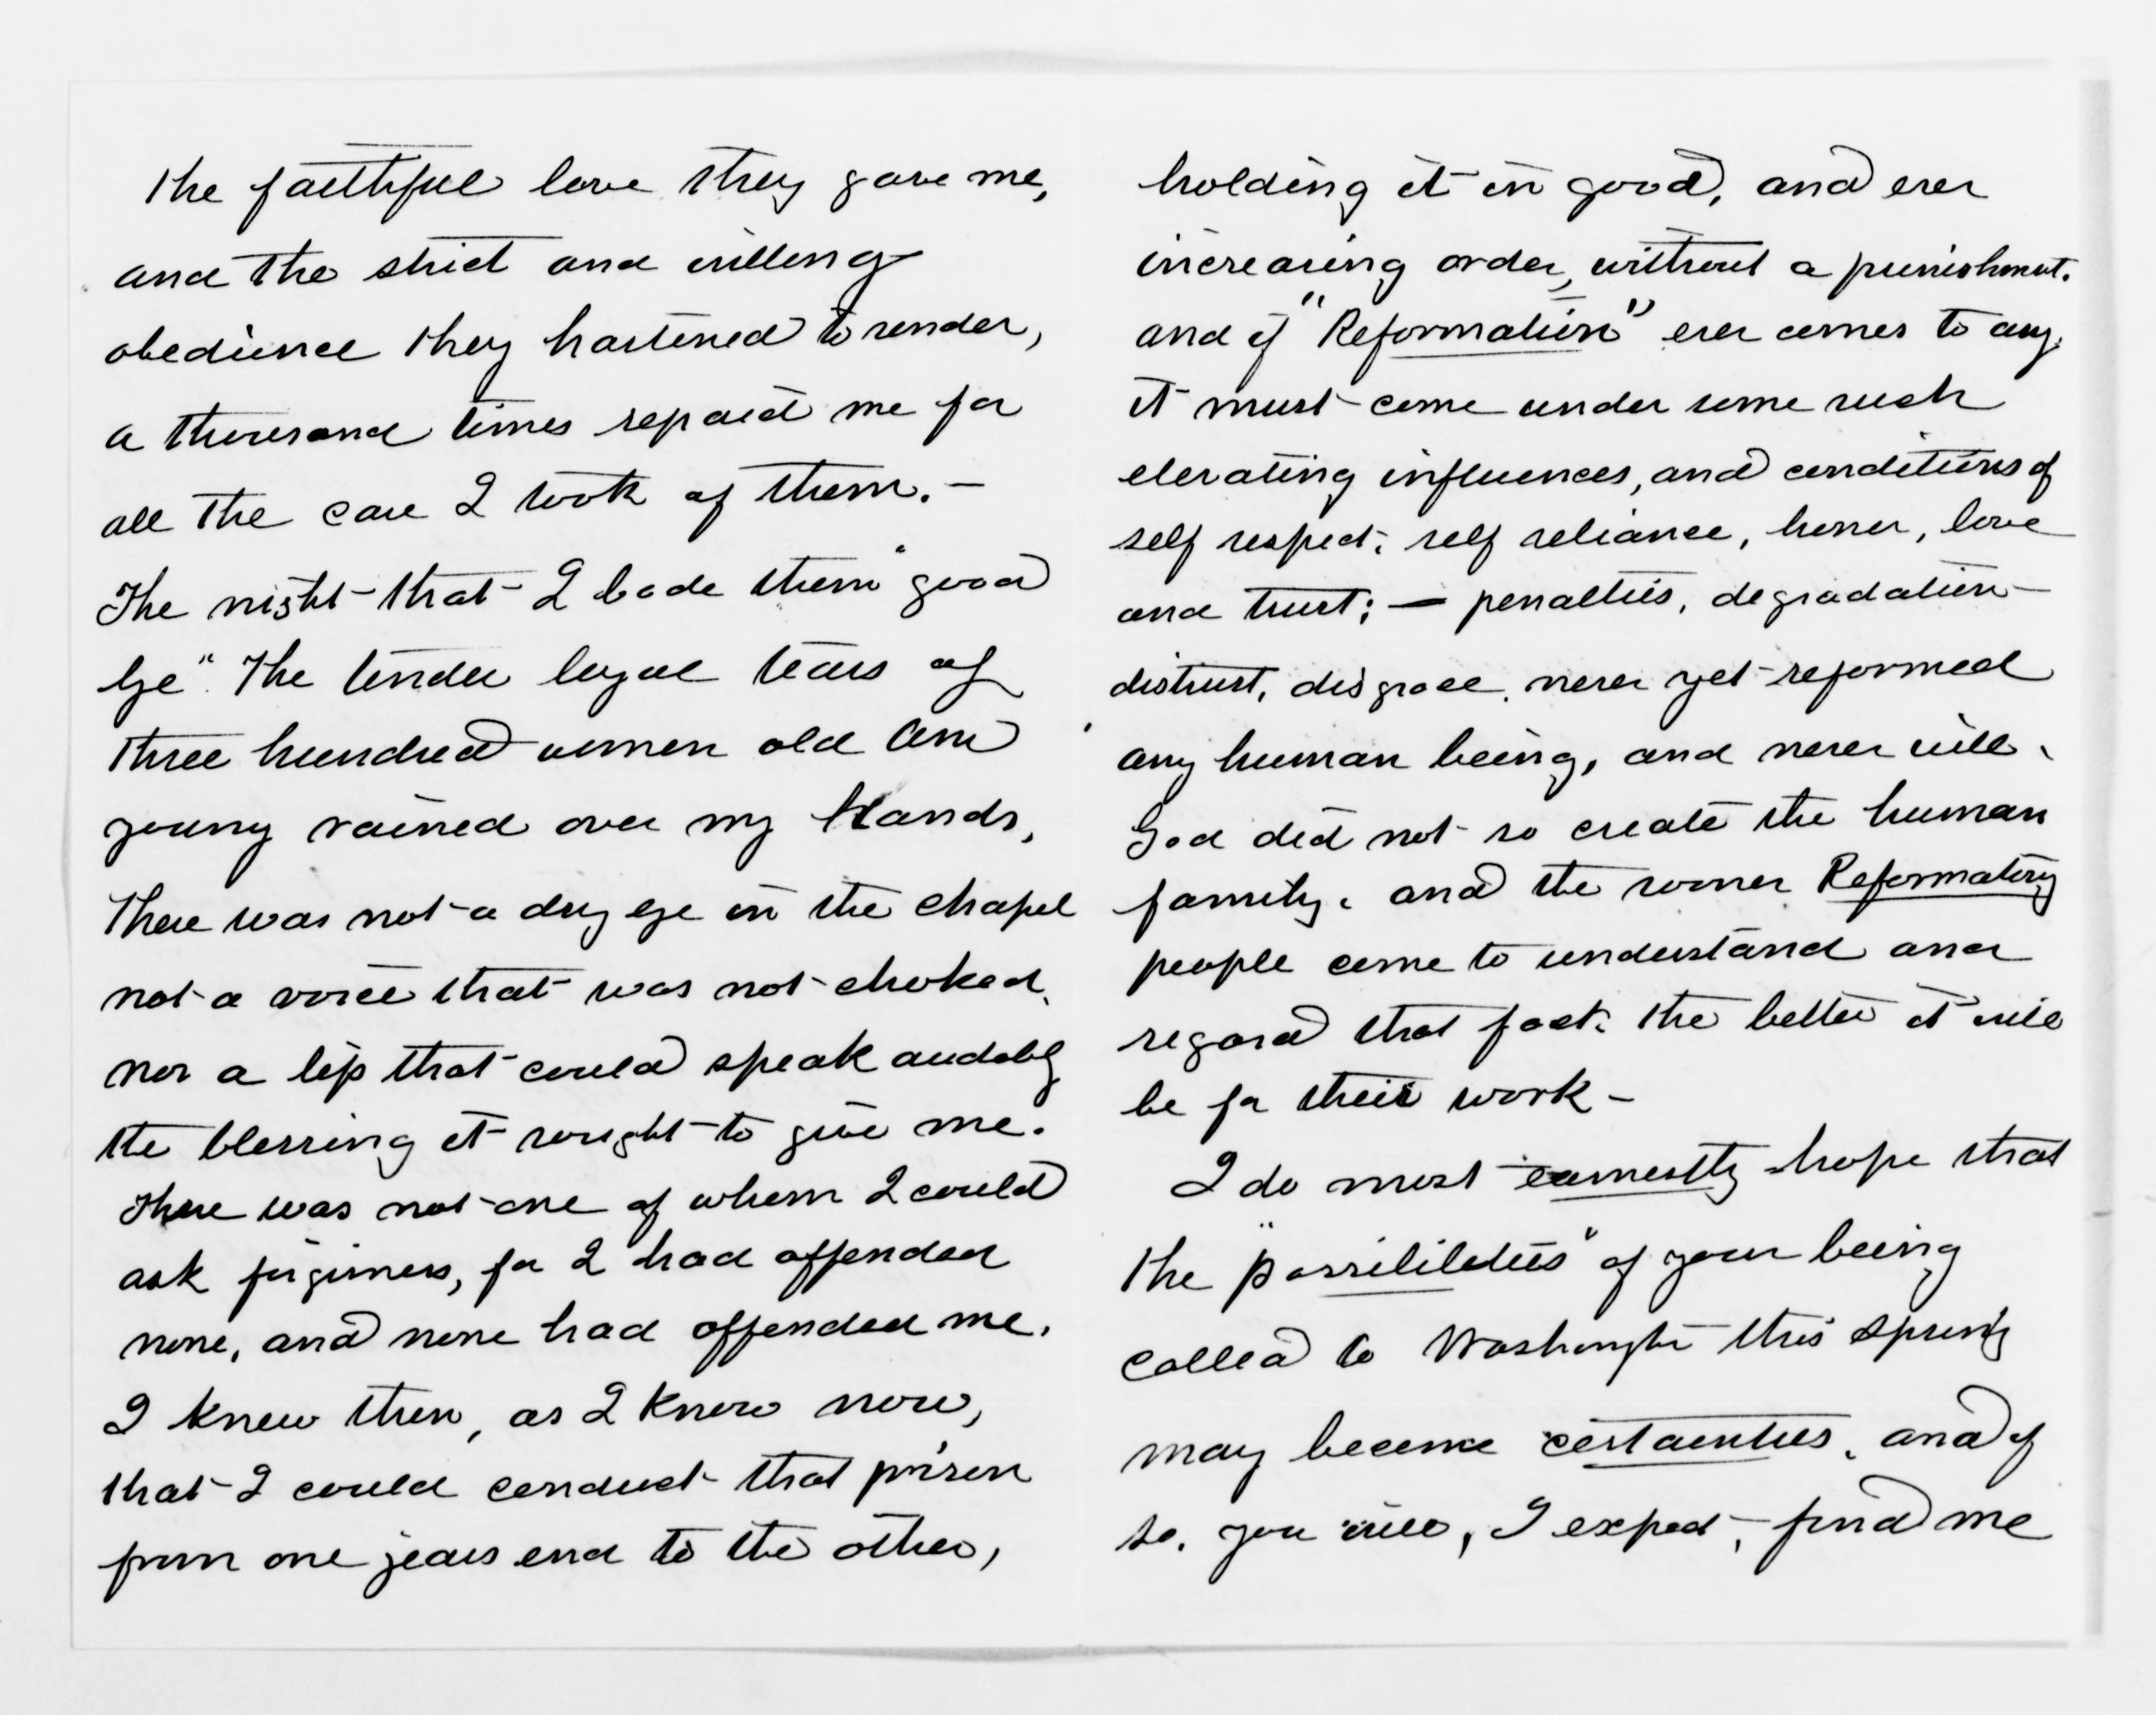 the faithful love they gave me,
and the strict and willing
obedience they hastened to render,
a thousand times repaid me for
all the care I took of them. —
The night that I bade them "good
bye". The tender loyal tears of
three hundred women old and
young rained over my hands,
There was not a dry eye in the chapel
not a voice that was not choked,
nor a lip that could speak audibly
the blessing it sought to give me.
There was not one of whom I could
ask forgivness, for I had offended
none, and none had offended me.
I knew then, as I know now,
that I could conduct that prison
from one years end to the other,
holding it in good, and ever
increasing order, without a punishment.
and if "Reformation" ever comes to any,
it must come under some such
elevating influences, and conditions of
self respect, self reliance, honor, love
and trust; — penalties, degradation
distrust, disgrace, never yet reformed
any human being, and never will,
God did not so create the human
family. and the sooner Reformatory
people come to understand and
regard that fact, the better it will
be for their work —
I do most earnestly hope that
the "possibilities" of your being
called to Washington this spring
may become certainties, and if
so, you will, I expect, find me